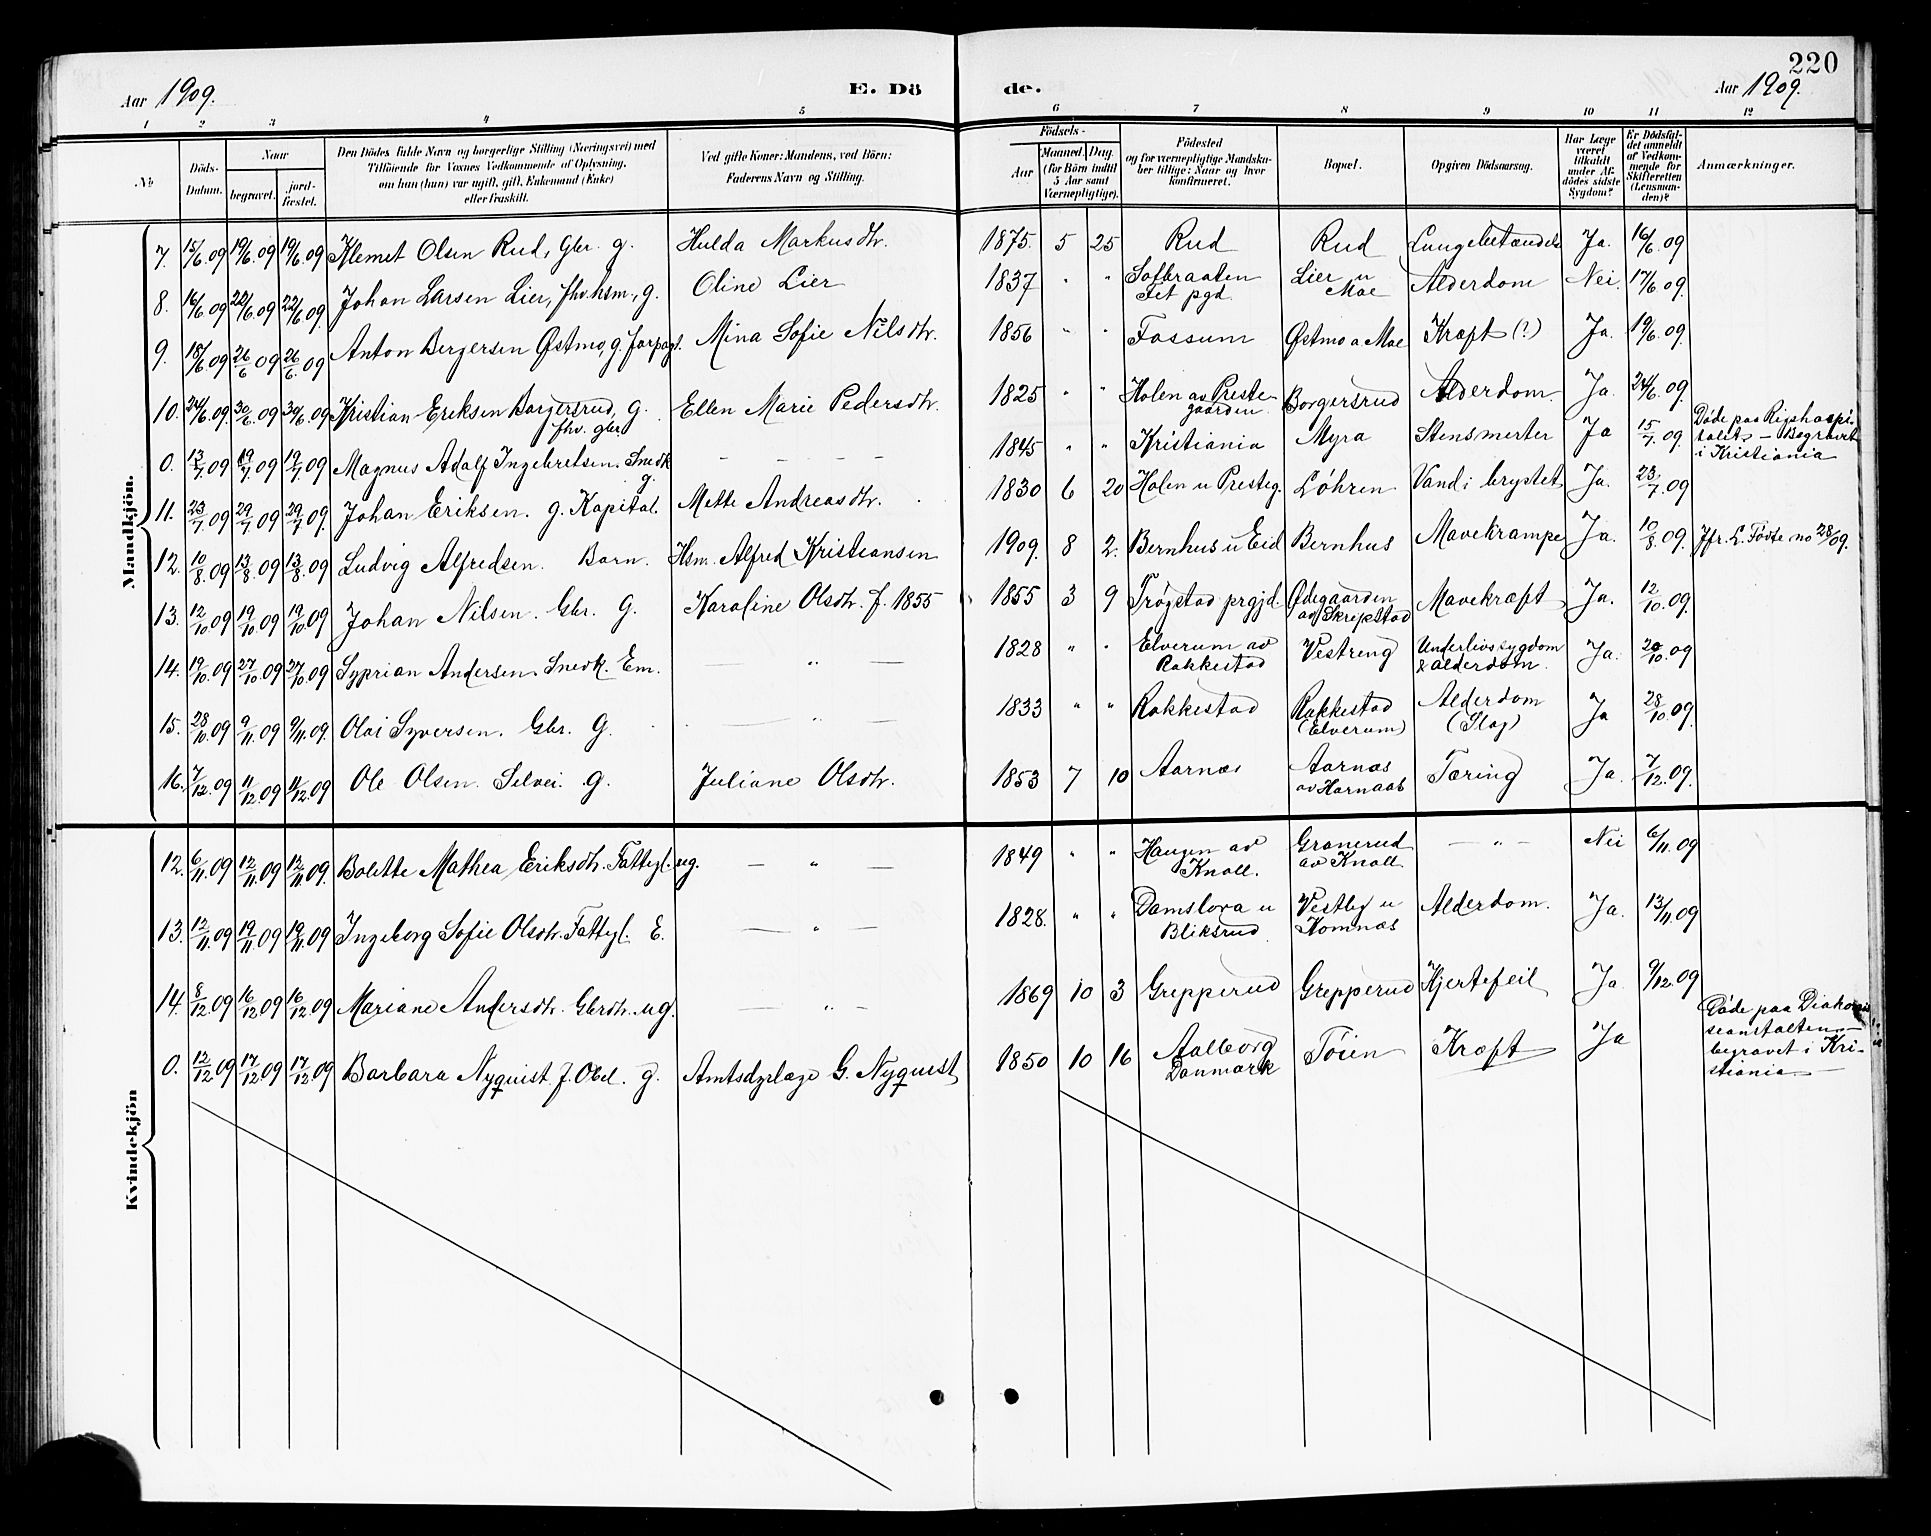 220
Aar 1909. E. Dö de. Aar 1909.
1 2 3 4 5 6 7 8 9 10 11 12
No
Döds-Datum.
Naar
begravet.
jord-fæstet.
Den Dödes fulde Navn og borgerlige Stilling (Næringsvei) med
Tilföiende for Voxnes Vedkommende af Oplysning,
om han (hun) var ugift, gift, Enkemand (Enke)
eller fraskilt.
Ved gifte Koner: Mandens, ved Börn:
Faderens Navn og Stilling.
Födsels-
Aar
Maaned. Dag.
(for Börn indtil
5 Aar samt
Værnepligtige).
Födested
og for værnepligtige Mandska-
ber tillige: Naar og hvor
konfirmeret.
Bopæl.
Opgiven Dödsaarsag.
Har Læge
været
tilkaldt
under Af-
dödes sidste
Sygdom?
Er Dödsfal-
det anmeldt
af Vedkom-
mende for
Skifteretten
(Lensman-
den)?
Anmærkninger.
Mandkjön.
7. 15/6.09 19/6.09 19/6.09 Klemet Olsen Rud, Gbr. g. Hulda Markusdtr. 1875. 5 25 Rud Rud Lungebetændels Ja. 16/6.09
8. 16/6.09 22/6.09 22/6.09. Johan Larsen Lier, fhv. hsm., g. Oline Lier 1837 " " Sofbraaten Fet pgd. Lier u Moe Alderdom Nei. 17/6.09.
9. 18/6.09 26/6 09 26/6.09 Anton Bergersen Østmo, g. forpagt. Mina Sofie Nilsdtr. 1856 " " Fossum Østmo a Moe Kræft (?) Ja. 19/6.09.
10. 24/6.09. 30/6.09 30/6.09 Kristian Eriksen Borgersrud, g. fhv. gbr. Ellen Marie Pedersdtr. 1825 " " Holen av Preste gaarden Borgersrud Alderdom. Ja. 24/6.09.
0. 13/7.09 19/7.09 19/7.09 Magnus Adolf Ingebretsen. Snedk g. – – – – 1845 " " Kristiania Myra Stensmerter Ja 15/7.09 Døde paa Rigshospi-
talet, – Begravet
i Kristiania
11. 23/7.09 29/7.09 29/7.09. Johan Eriksen. g. Kapital. Mette Andreasdtr. 1830 6 20 Holen u Presteg. Løhren Vand i brystet Ja. 23/7.09
12. 10/8.09 13/8.09 13/8.09 Ludvig Alfredsen. Barn. Hsm. Alfred Kristiansen 1909. 8 2. Bernhus u Eid Bernhus Mavekrampe Ja. 10/8.09. Jfr. L. Fødte no 28/09.
13. 12/10.09 19/10.09 19/10.09 Johan Nilsen. Gbr. G. Karoline Olsdtr. f. 1855 1855 3 9 Trøgstad prgjd. Ødegaarden av Skripstad Mavekræft Ja. 12/10.09.
14. 19/10.09 27/10 09 27/10.09 Syprian Andersen. Snedk. Em. — " — 1828 " " Elverum av Rakkestad Vestreng Underlivssygdom & alderdom. Ja. 20/10.09
15. 28/10.09 9/11.09 9/11.09. Olai Syversen. Gbr. G. — " — 1833 " " Rakkestad Rakkestad (Elverum) Alderdom (Slag) Ja 28/10.09.
16. 7/12.09 11/12.09 11/12.09 Ole Olsen. Selvei. g. Juliane Olsdtr. 1853 7 10 Aarnæs Aarnæs av Harnaas Tæring Ja. 7/12.09.
Kvindekjön
12. 6/11.09 12/11.09 12/11.09. Bolette Mathea Eriksdtr. Fattigl. ug. — " — 1849 " " Haugen av Knoll. Granerud av Knoll — " — Nei 6/11.09
13. 12/11.09 19/11.09 19/11.09 Ingeborg Sofie Olsdtr. Fattigl. E. — " — 1828. " " Damslora u Bliksrud Vestby u Komnæs Alderdom. Ja. 13/11.09
14. 8/12.09 16/12 09 16/12.09 Mariane Andersdtr. Gbrdtr. ug. — " — 1869 10 3 Grepperud Grepperud Hjertefeil Ja. 9/12.09
0. 12/12 09 17/12 09 17/12 09 Barbara Nyquist f. Obel. g. Amtsdyrlæge G. Nyquist 1850 10 16 Aalborg Danmark Tøien Kræft Ja Døde paa Diakonis
seanstalten –
begravet i Kri-
stiania. –